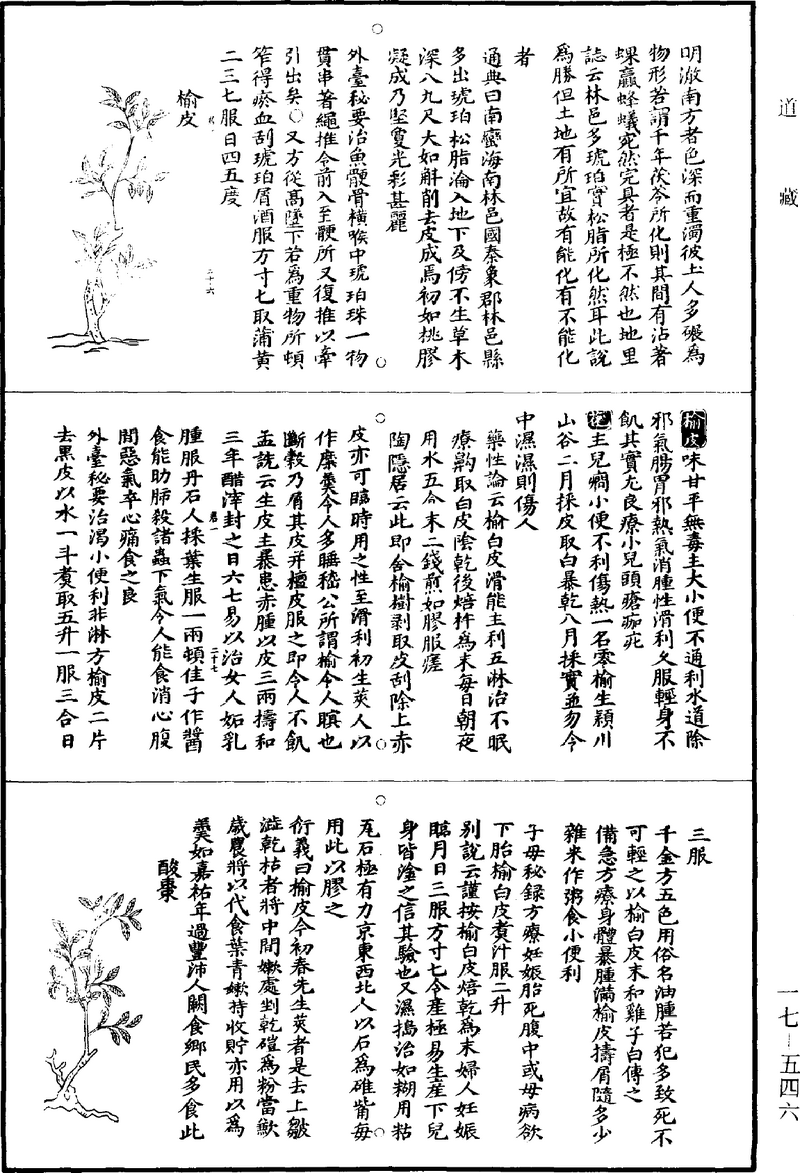 道藏
明澈南方者色深而重濁彼土人多碾爲
物形若謂千年茯苓所化則其間有沾著
蜾蠃蜂蟻宛然完具者是極不然也地里
誌云林邑多琥珀實松脂所化然耳此說
爲勝但土地有所宜故有能化有不能化
者
通典曰南蠻海南林邑國秦象郡林邑縣
多出琥珀松脂淪入地下及傍不生草木
深八九尺大如斛削去皮成焉初如桃膠
凝成乃堅實光彩甚麗
外臺秘要治魚骾骨橫喉中琥珀珠一物
貫串著繩推令前入至骾所又復推以牽
引出矣○又方從高墜下若爲重物所頓
笮得瘀血刮琥珀屑酒服方寸匕取蒲黃
二三匕服日四五度
榆皮
二十六
榆皮味甘平無毒主大小便不通利水道除
邪氣腸胃邪熱氣消腫性滑利久服輕身不
飢其實尤良療小兒頭瘡痂疕
花主兒癇小便不利傷熱一名零榆生潁川
山谷二月採皮取白暴乾八月採實並勿令
中濕濕則傷人
藥性論云榆白皮滑能主利五淋治不眠
療齁取白皮陰乾後焙杵爲末每日朝夜
用水五合末二錢煎如膠服瘥
陶隱居云此即今榆樹剥取皮刮除上赤
皮亦可臨時用之性至滑利初生莢人以
作糜羹令人多睡嵇公所謂榆令人瞑也
斷穀乃屑其皮并檀皮服之即令人不飢
孟詵云生皮主暴患赤腫以皮三兩擣和
三年醋滓封之日六七易以治女人妬乳
卷一
二十七
腫服丹石人採葉生服一兩頓佳子作醬
食能助肺殺諸蟲下氣令人能食消心腹
間惡氣卒心痛食之良
外臺秘要治渴小便利非淋方榆皮二片
去黑皮以水一斗煑取五升一服三合日
三服
千金方五色用俗名油腫若犯多致死不
可輕之以榆白皮末和雞子白傅之
備急方療身體暴腫滿榆皮擣屑隨多少
雜米作粥食小便利
子母秘録方療妊娠胎死腹中或母病欲
下胎榆白皮煑汁服二升
別說云謹按榆白皮焙乾爲末婦人妊娠
臨月日三服方寸匕令產極易生產下兒
身皆塗之信其驗也又濕搗治如糊用粘
瓦石極有力京東西北人以石爲碓觜每
用此以膠之
衍義曰榆皮今初春先生莢者是去上皺
澁乾枯者將中間嫩處剉乾磑爲粉當歉
歲農將以代食葉青嫩時收貯亦用以爲
羹如嘉祐年過豐沛人闕食鄉民多食此
酸棗
一七—五四六